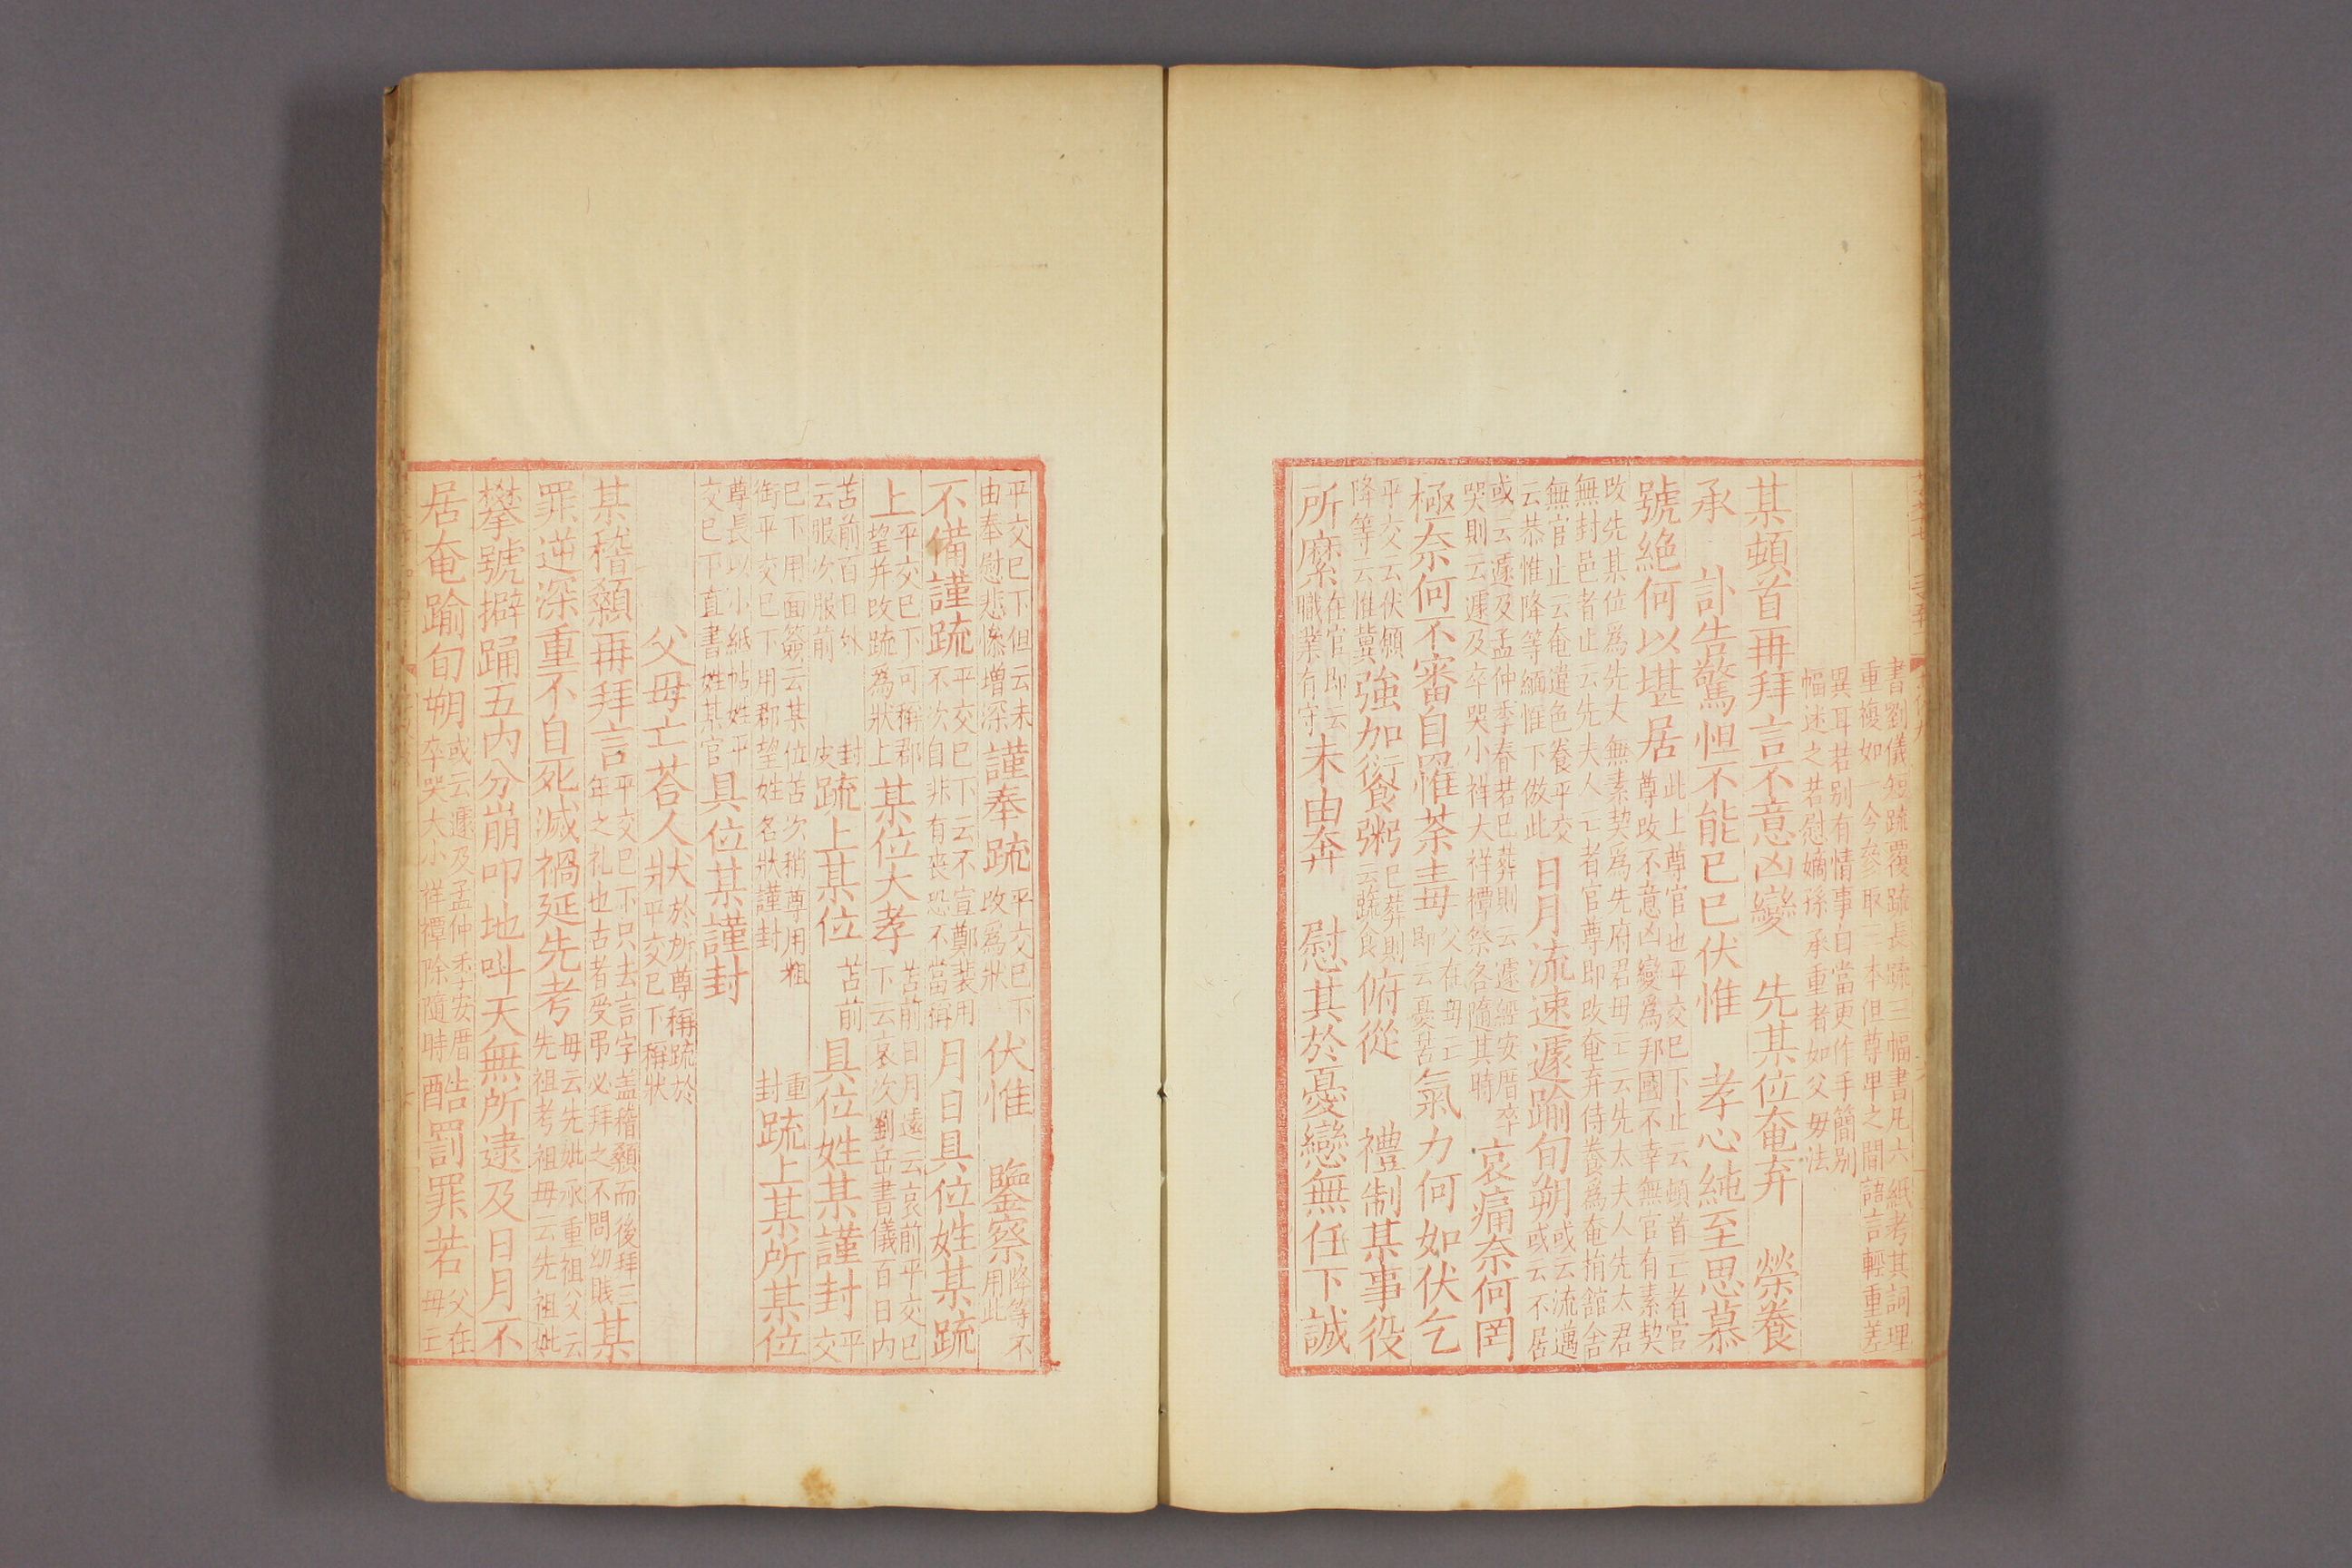 書劉儀短疏覆疏長疏三幅書凡六紙考其詞理
重複如一今參取三本但尊卑之間語言輕重差
異耳若別有情事自當更作手簡別
幅述之若慰嫡孫承重者如父母法
某頓首再拜言不意凶變　先某位奄弃　榮養
承　訃告驚怛不能已已伏惟　孝心純至思慕
號絕何以堪居此上尊官也平交已下止云頓首亡者官
尊改不意凶變爲邦國不幸無官有素契
改先某位爲先丈無素契爲先府君母亡云先太夫人先太君
無封邑者止云先夫人亡者官尊即改奄弃侍養爲奄捐館舍
無官止云奄違色養平交
云恭惟降等緬惟下倣此日月流速遽踰旬朔或云流邁
或云不居
或云遽及孟仲季春若已葬則云遽經安厝卒
哭則云遽及卒哭小祥大祥禫祭各隨其時哀痛奈何罔
極奈何不審自罹荼毒父在母亡
即云憂苦氣力何如伏乞
平交云伏願
降等云惟冀強加飡粥已葬則
云疏食俯從　禮制某事役
所縻在官即云
職業有守未由奔　慰其於憂戀無任下誠
平交已下但云未
由奉慰悲慘增深謹奉疏平交已下
改爲狀伏惟　鑒察降等不
用此
不備謹疏平交已下云不宣鄭裴用
不次自非有喪恐不當稱月日具位姓某疏
上平交已下可稱郡
望并改疏爲狀上某位大孝苫前日月遠云哀前平交已
下云哀次劉岳書儀百日內
苫前百日外
云服次服前封
皮疏上某位苫前具位姓某謹封平
交
已下用面簽云某位苫次稍尊用粗
銜平交已下用郡望姓名狀謹封重
封疏上某所某位
尊長以小紙帖姓平
交已下直書姓某官具位某謹封
父母亡荅人狀於所尊稱疏於
平交已下稱狀
某稽顙再拜言平交已下只去言字盖稽顙而後拜三
年之礼也古者受弔必拜之不問幼賤某
罪逆深重不自死滅禍延先考母云先妣承重祖父云
先祖考祖母云先祖妣
攀號擗踊五內分崩叩地叫天無所逮及日月不
居奄踰旬朔或云遽及孟仲季安厝
卒哭大小祥禫除隨時酷罰罪若父在
母亡